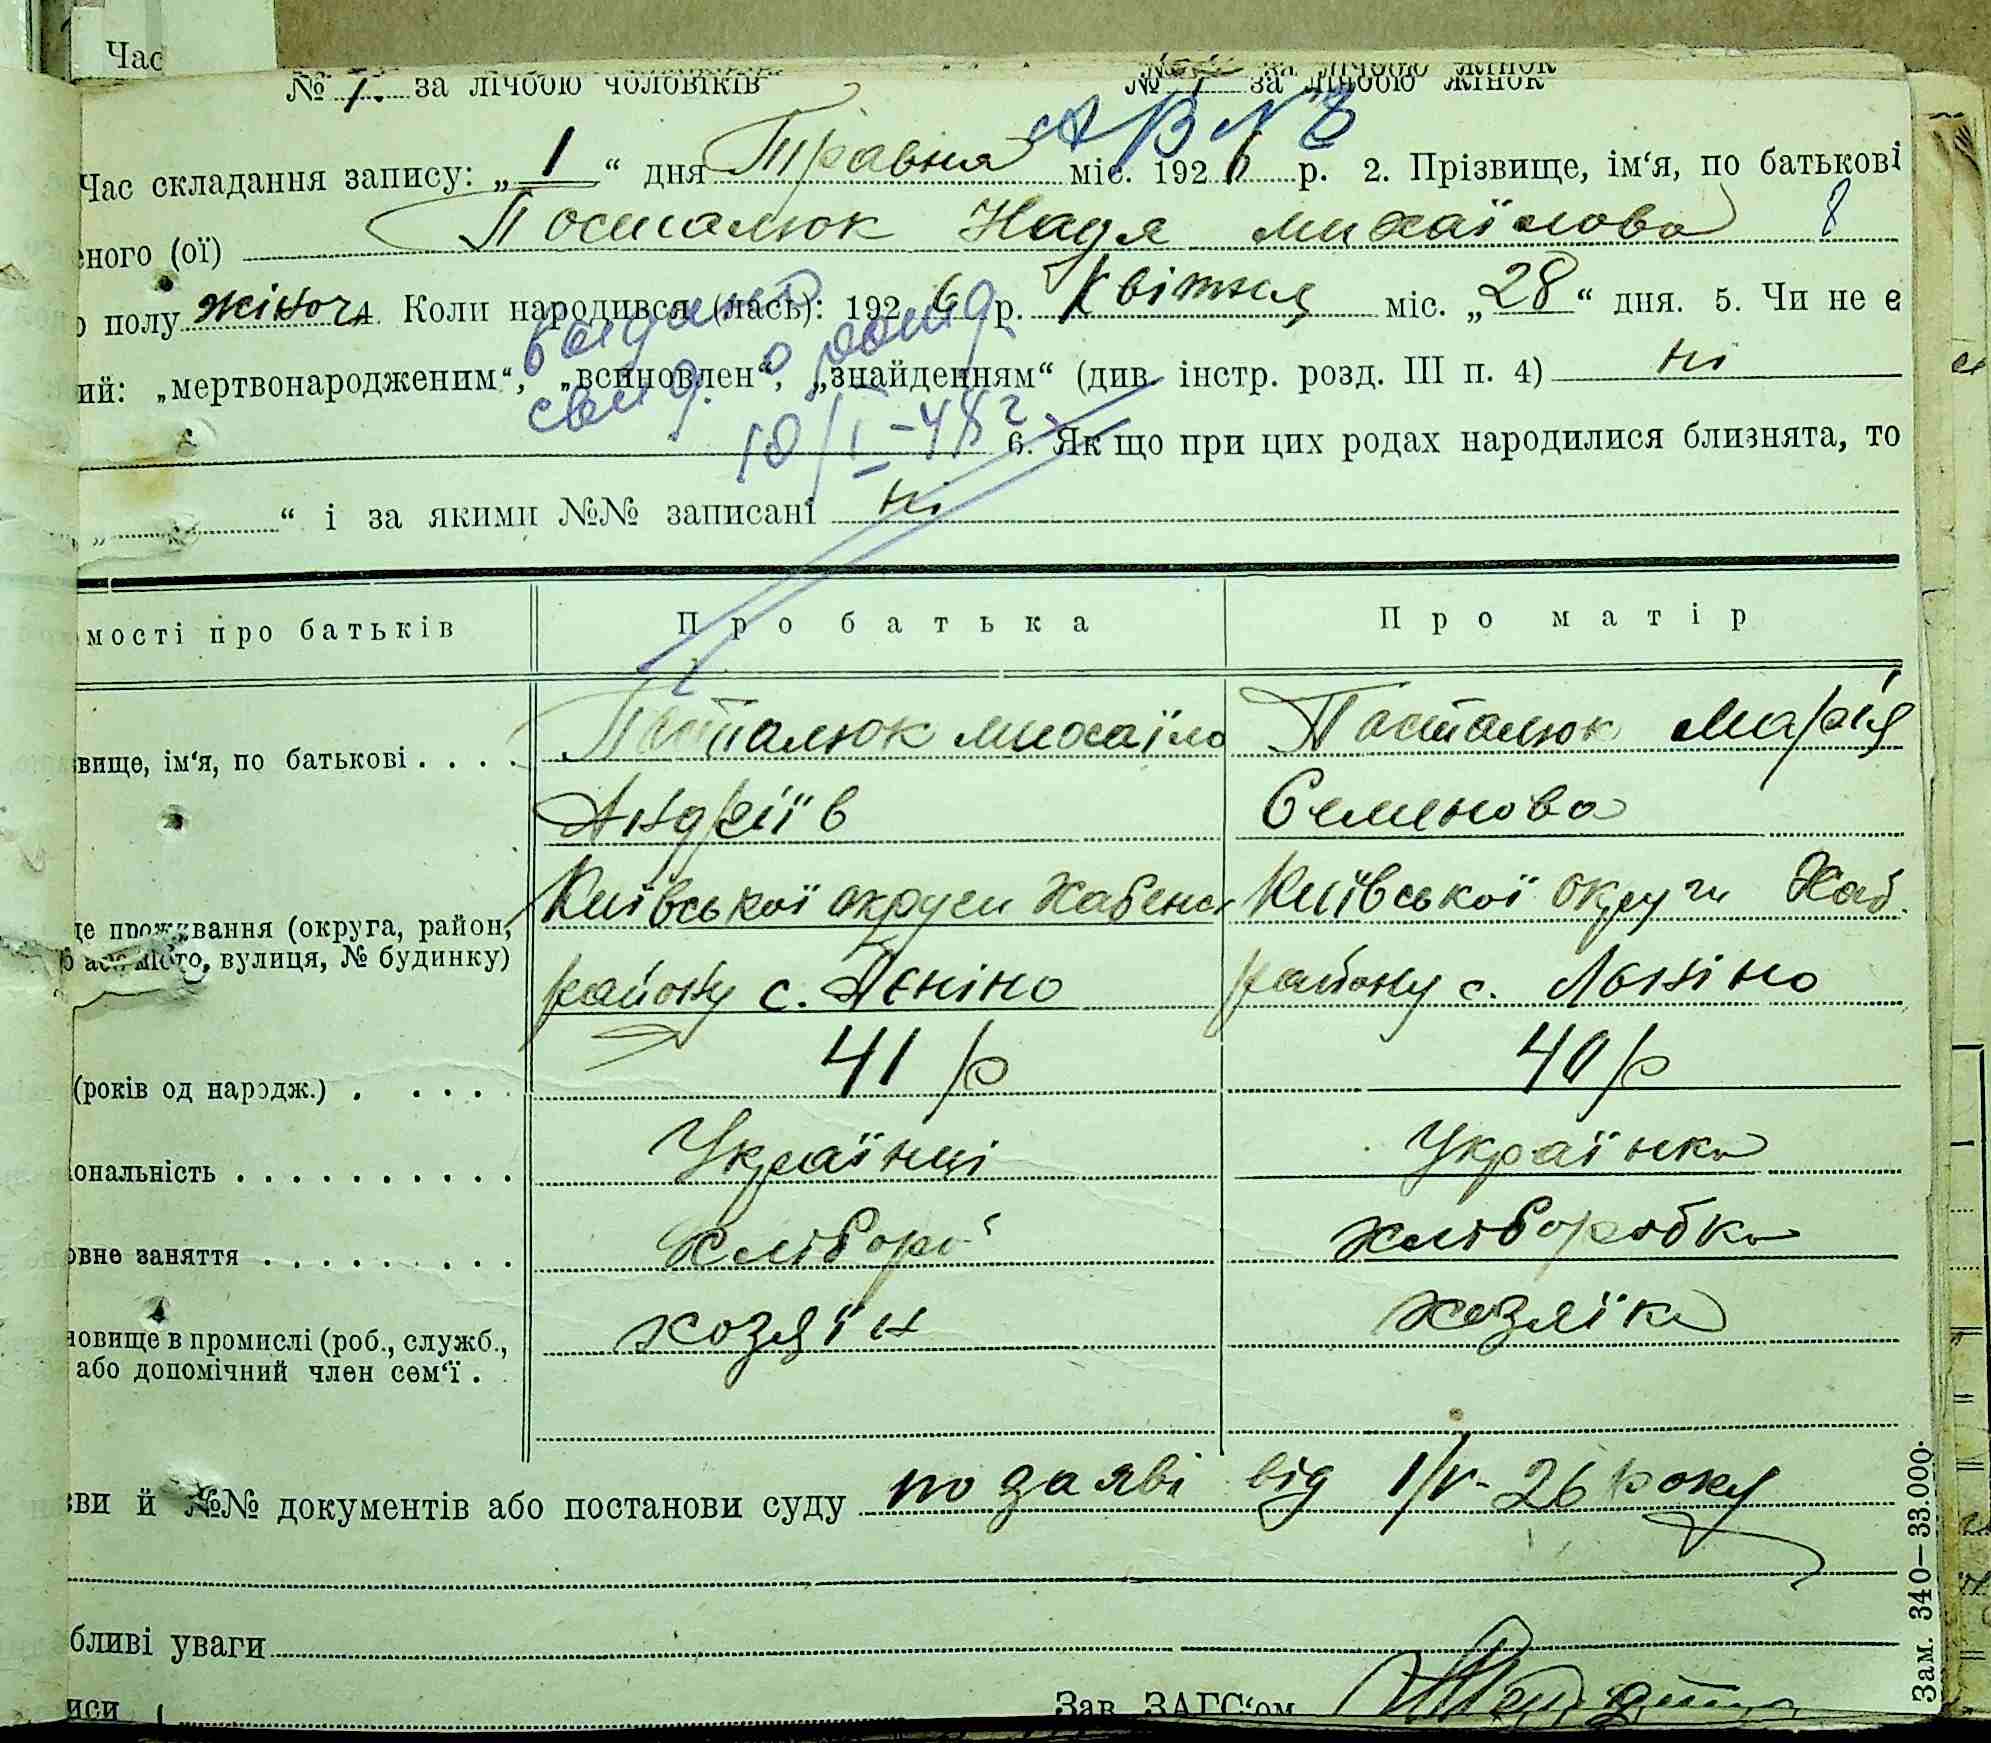 Час
№ 1. за лічбою чоловіків № за лічбою жінок
АВ № 8
Час складання запису: „1“ дня Травня міс. 1926 р. 2. Прізвище, ім'я, по батькові
еного (ої) Посталюк Надя михаїлова 8
о полу жіноч 4. Коли народився (лась): 1926 р. Квітня міс. „28“ дня. 5. Чи не є
видано
ий: „мертвонародженим“, „всиновлен“, „знайденням“ (див. інстр. розд. III п. 4) ні
свид. о рожд.
10/I-48 г.
6. Як що при цих родах народилися близнята, то
„ “ і за якими №№ записані ні
мості про батьків Про батька Про матір
вище, ім'я, по батькові . . . . Посталюк михаїло Посталюк Марія
Андріїв Семенова
це проживання (округа, район, Київської округи Хабенс Київської округи Хаб.
або місто, вулиця, № будинку) району с. Леніно району с. Леніно
(років од народж.) . . . . . 41 р 40 р
іональність . . . . . . . . . . Українці Українка
овне заняття . . . . . . . . . хлібороб хліборобка
новище в промислі (роб., служб., хозяїн хозяїка
або допомічний член сем'ї .
зви й №№ документів або постанови суду по заяві від 1/V-26 року
бливі уваги
иси Зав. ЗАГС'ом
Зам. 340—33.000.